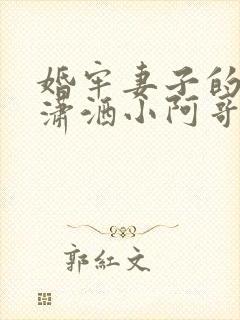 婚牢妻子的
潇洒小阿哥
郭紅文